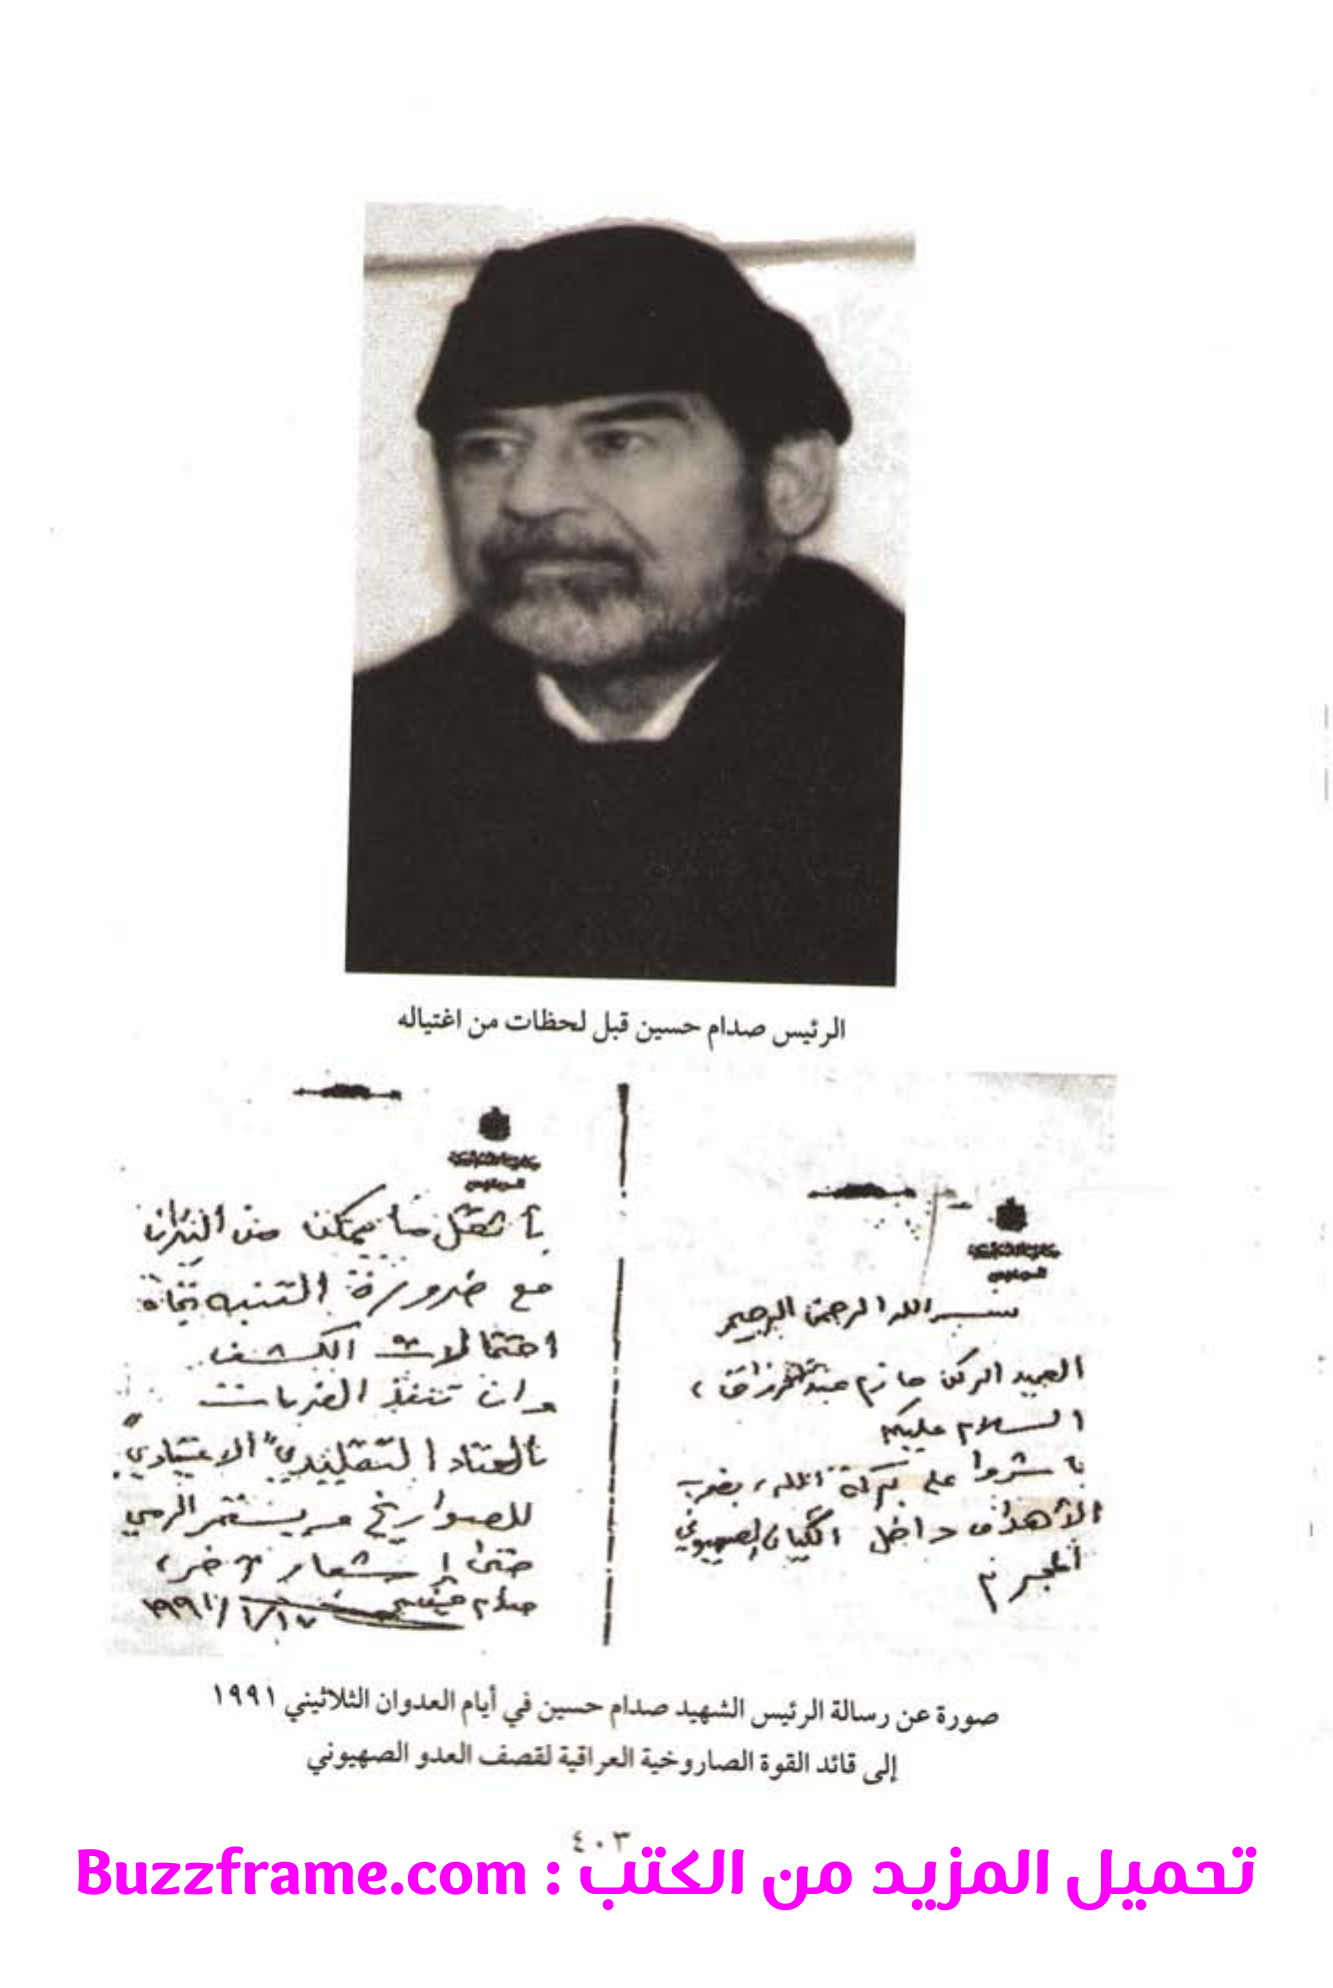 الرئيس صدام حسين قبل لحظات من اغتياله
بسم الله الرحمن الرحيم
العميد الركن حازم عبد الرزاق ،
السلام عليكم
باشروا على بركة الله ، بضرب
الأهداف داخل الكيان الصهيوني
المجرم
بأثقل ما يمكن من النيران
مع ضرورة التنبه تجاه
احتمالات الكشف
وان تنفذ الضربات
بالعتاد التقليدي "الاعتيادي"
للصواريخ ويستمر الرمي
حتى إشعار آخر ،
صدام حسين
١٩٩١/١/١٧
صورة عن رسالة الرئيس الشهيد صدام حسين في أيام العدوان الثلاثيني ١٩٩١
إلى قائد القوة الصاروخية العراقية لقصف العدو الصهيوني
٤٠٣
تحميل المزيد من الكتب : Buzzframe.com